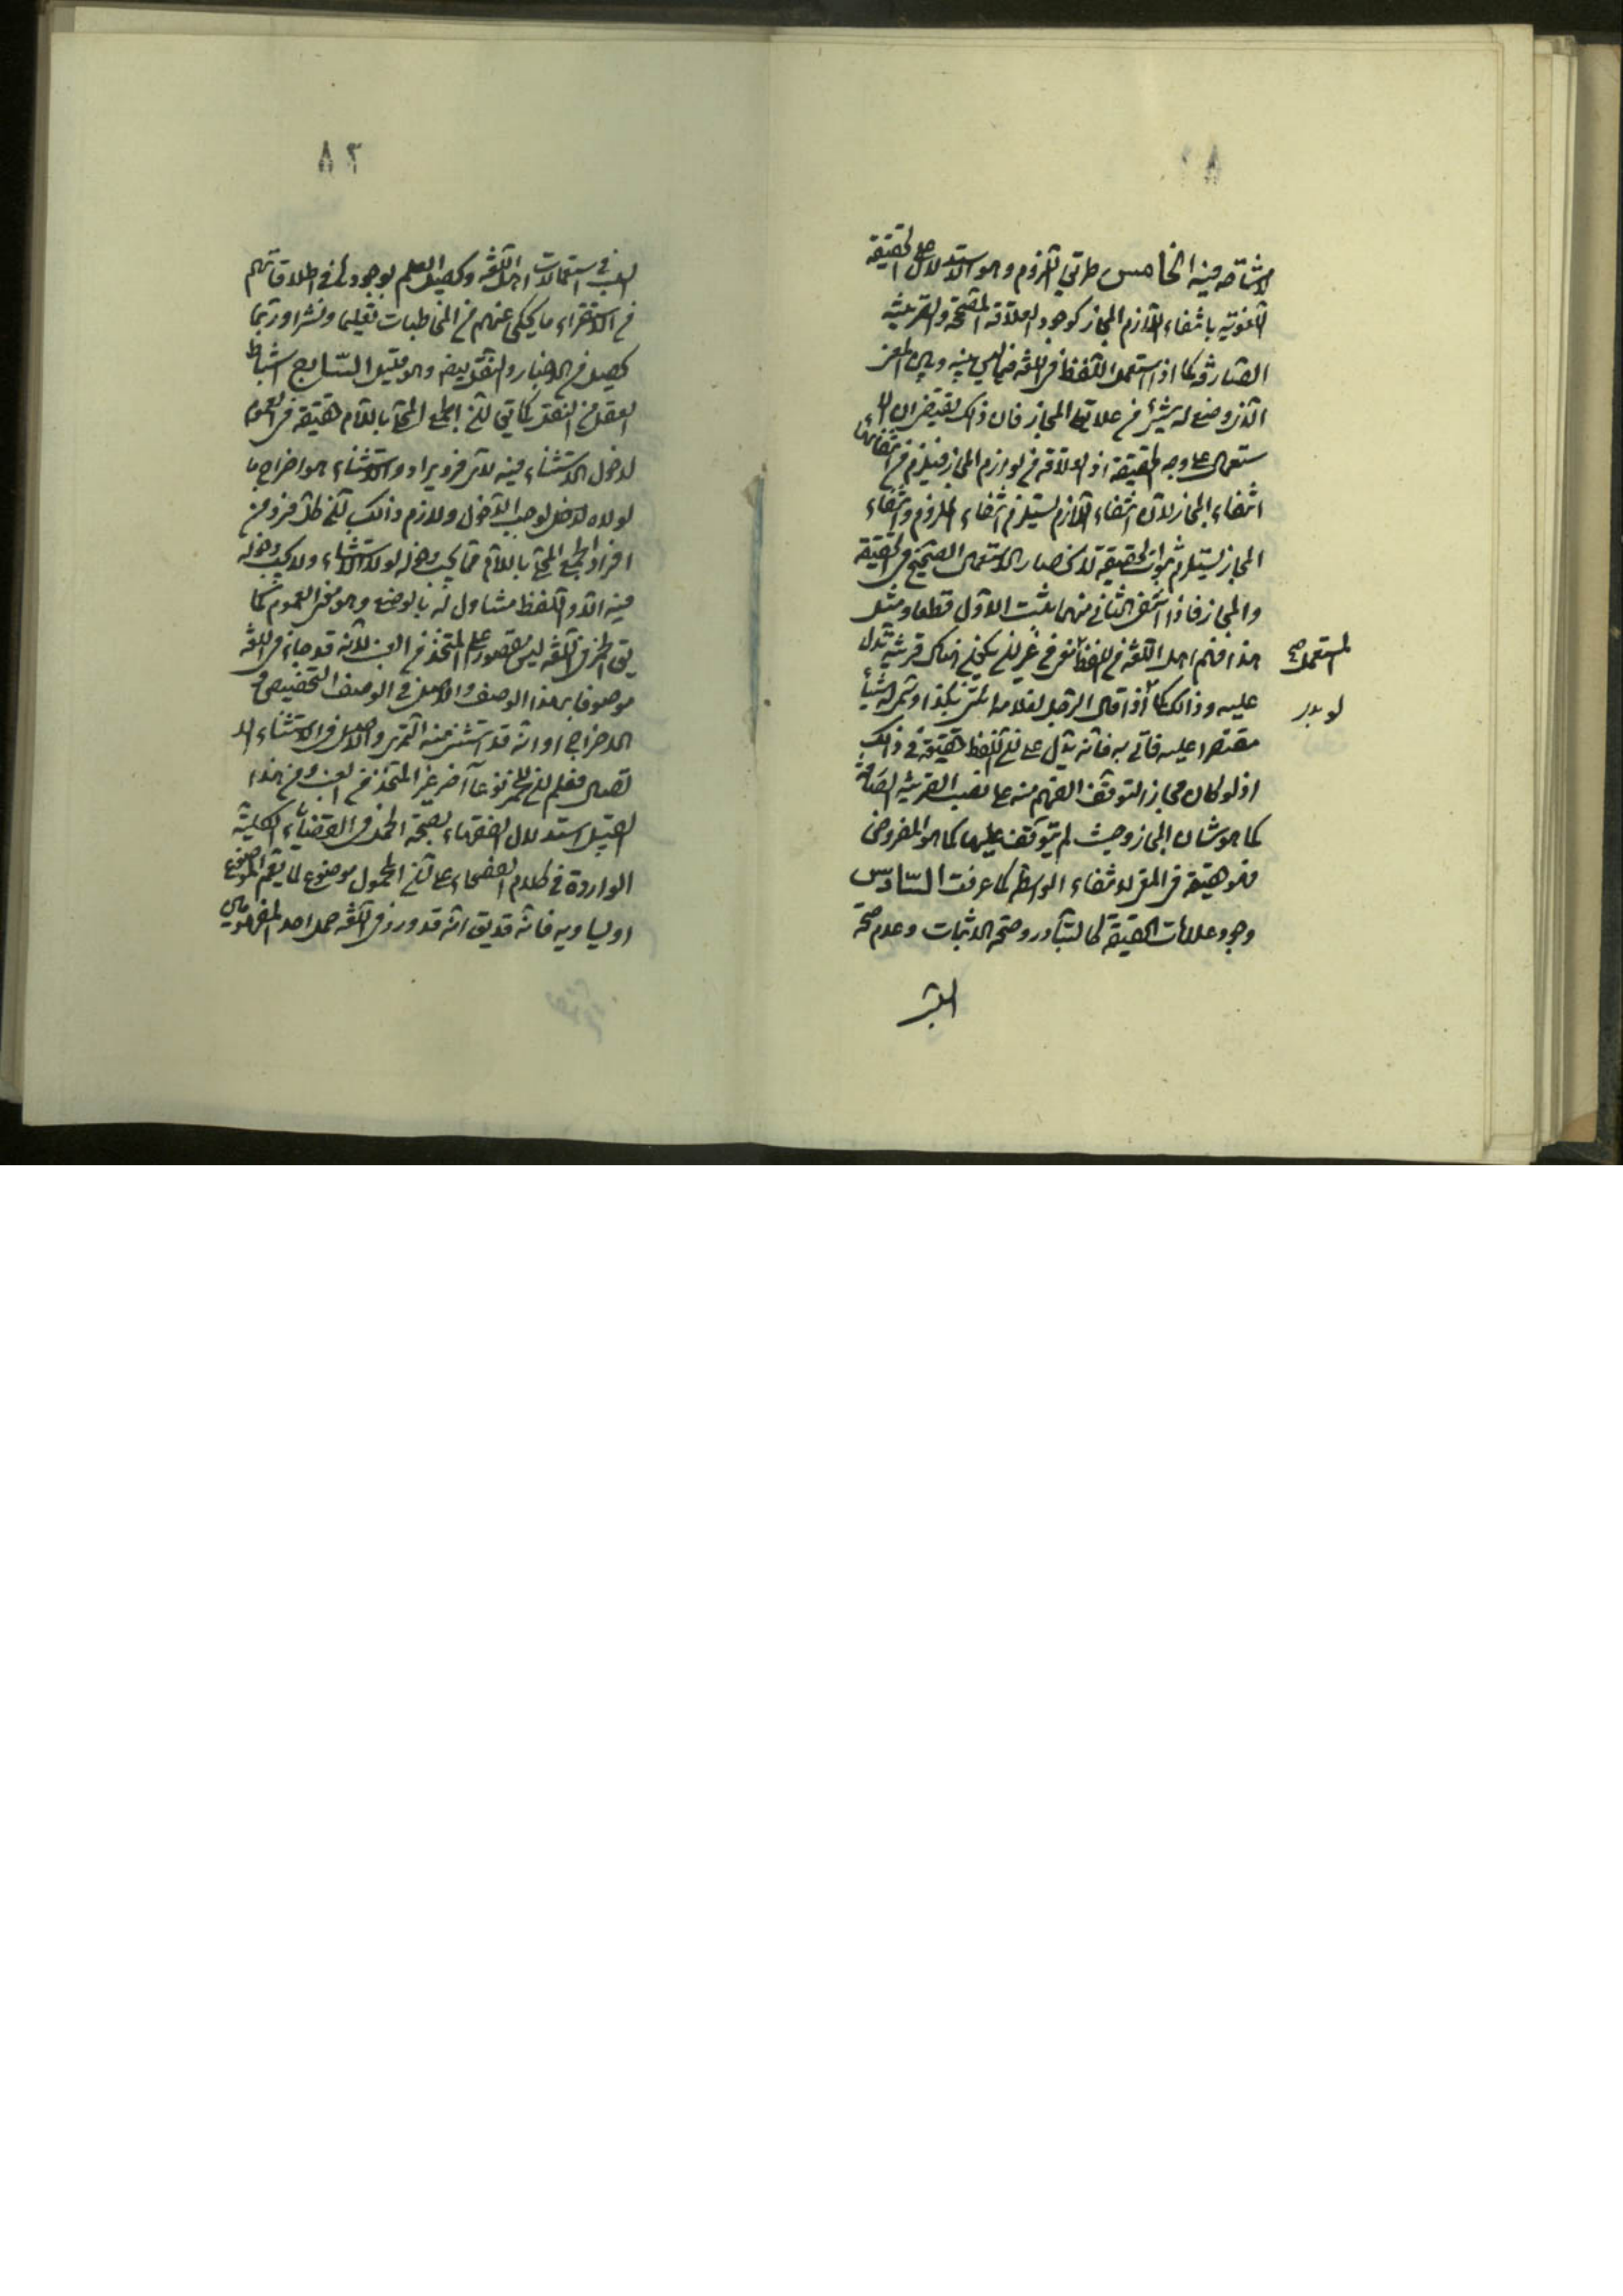 لا مشاحة فيه الخامس طريق اللزوم وهو الاستدلال على الحقيقة
اللغوية بانتفاء لازم المجاز كوجود العلاقة المصححة والقرينة
الصارفة كما اذا استعمل اللفظ في اللغة فيما ليس بينه وبين المعنى
الذي وضع له شيء من علائق المجاز فان ذلك يقتضي ان الا
ستعمال على وجه الحقيقة اذ العلاقة من لوازم المجاز فيلزم من انتفائها
انتفاء المجاز لان انتفاء اللازم يستلزم انتفاء الملزوم وانتفاء
المجاز يستلزم ثبوت الحقيقة لانحصار الاستعمال الصحيح في الحقيقة
والمجاز فاذا انتفى الثاني منهما يثبت الاول قطعا ومثل
هذا فهم اهل اللغة من اللفظ معنى من غير ان يكون هناك قرينة تدل
المستعمل صح
عليه وذلك كما اذا قال الرجل لغلامه ائتني بكذا وشربه شيئا
مقتصرا عليه فاتى به فانه يدل على ان اللفظ حقيقة في ذلك
اذ لو كان مجازا لتوقف الفهم منه على نصب القرينة الصارفة
كما هو شان المجاز وحيث لم يتوقف عليها كما هو المفروض
فهو حقيقة في المعنى لانتفاء الواسطة كما عرفت السادس
وجود علامات الحقيقة كالتبادر وصحة الاثبات وعدم صحة
٨٢
السلب في استعمالات اهل اللغة وتحصيل العلم بوجودها في اطلاقاتهم
من الاستقراء ما يحكى عنهم من المخاطبات نظما ونثرا وربما
يحصل من الاخبار والنقل ايضا وهو قليل السابع استنباط
العقل من النقل كما يق ان الجمع المحلى باللام حقيقة في العموم
لدخول الاستثناء فيه لاي فرد يراد والاستثناء هو اخراج ما
لولاه لدخل لوجب الدخول ولازم ذلك ان كل فرد من
افراد الجمع المحلى باللام مما يجب دخوله لولا الاستثناء ولا يجب دخوله
فيه الا واللفظ متناول له بالوضع وهو معنى العموم كما
يق الخمر في اللغة ليس مقصورا على المتخذ من العنب لانه قد جاء في اللغة
موصوفا بهذا الوصف والاصل في الوصف التخصيص و
الاخراج او انه قد استثنى منه التمري والاصل في الاستثناء الا
تصال فعلم ان للخمر نوعا آخر غير المتخذ من العنب ومن هذا
القبيل استدلال الفقهاء بصحة الحمل في القضايا الكلية
الواردة في كلام الفصحاء على ان المحمول موضوع لما يعم الموضوع
او يساويه فانه قد يق انه قد ورد في اللغة حمل احد المفهومين